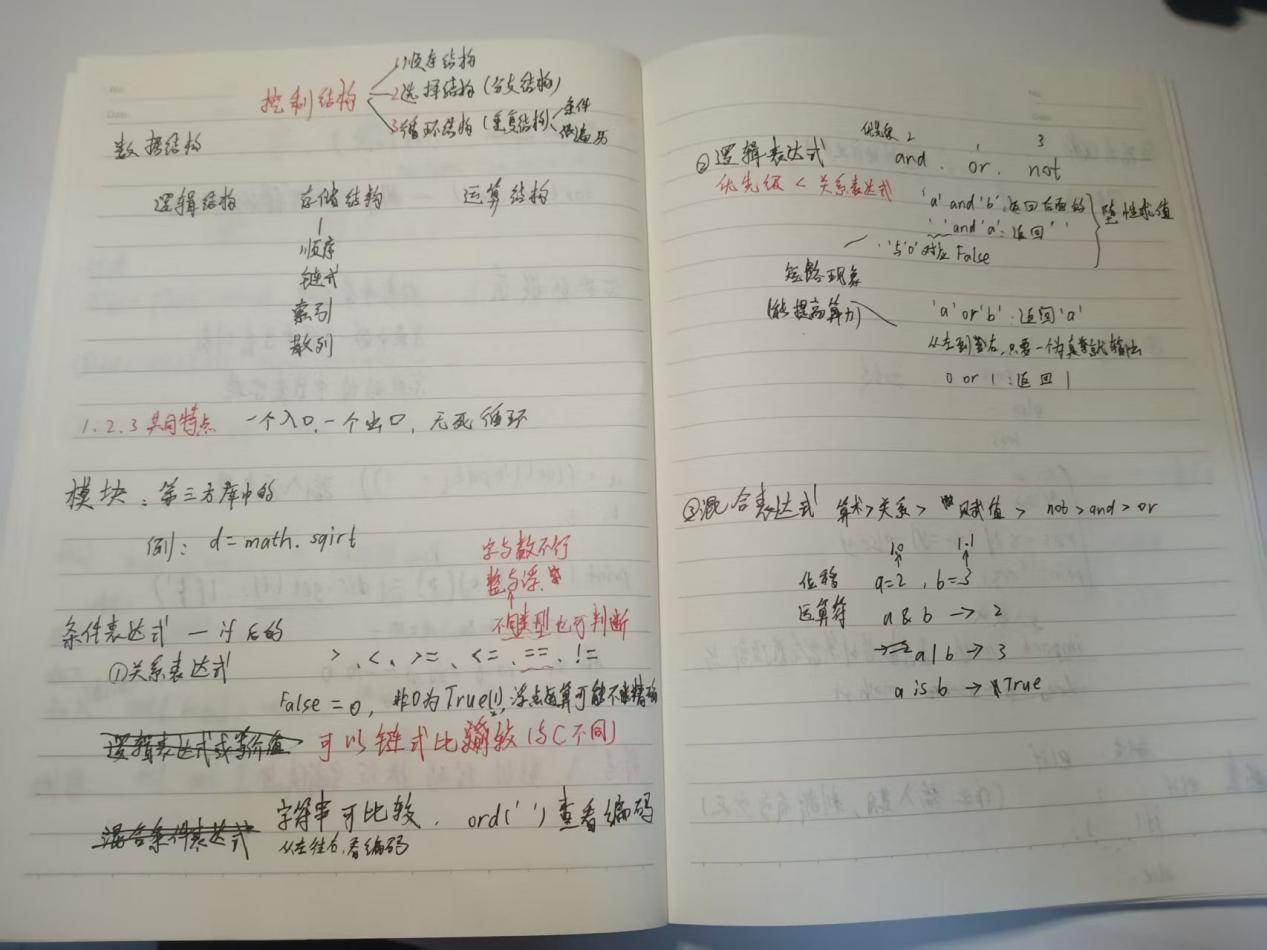 控制结构
1顺序结构
2选择结构(分支结构)
3循环结构(重复结构)
条件
遍历
数据结构
逻辑结构 存储结构 运算结构
顺序
链式
索引
散列
1.2.3 共同特点 一个入口,一个出口,无死循环
模块:第三方库中的
例:d=math.sqirt
字与数不行
整与浮
不同类型也可判断
条件表达式 — if后的
>、<、>=、<=、==、!=
①关系表达式
False=0,非0为True(1),浮点运算可能不准精确
逻辑表达式或等价值
可以链式比较(与C不同)
混合条件表达式
字符串可比较. ord(' ')查看编码
从左往右,看编码
优先级 2 1 3
②逻辑表达式 and. or. not
优先级<关系表达式
'a' and 'b':返回后面的
' ' and 'a':返回' '
惰性求值
' '与'0'对应False
短路现象
(能提高算力)
'a' or 'b':返回'a'
从左到右,只要一个为真就输出
0 or 1:返回1
③混合表达式 算术>关系> 赋值> not>and>or
10 1.1
位移 a=2,b=3
运算符 a & b → 2
a|b → 3
a is b → True